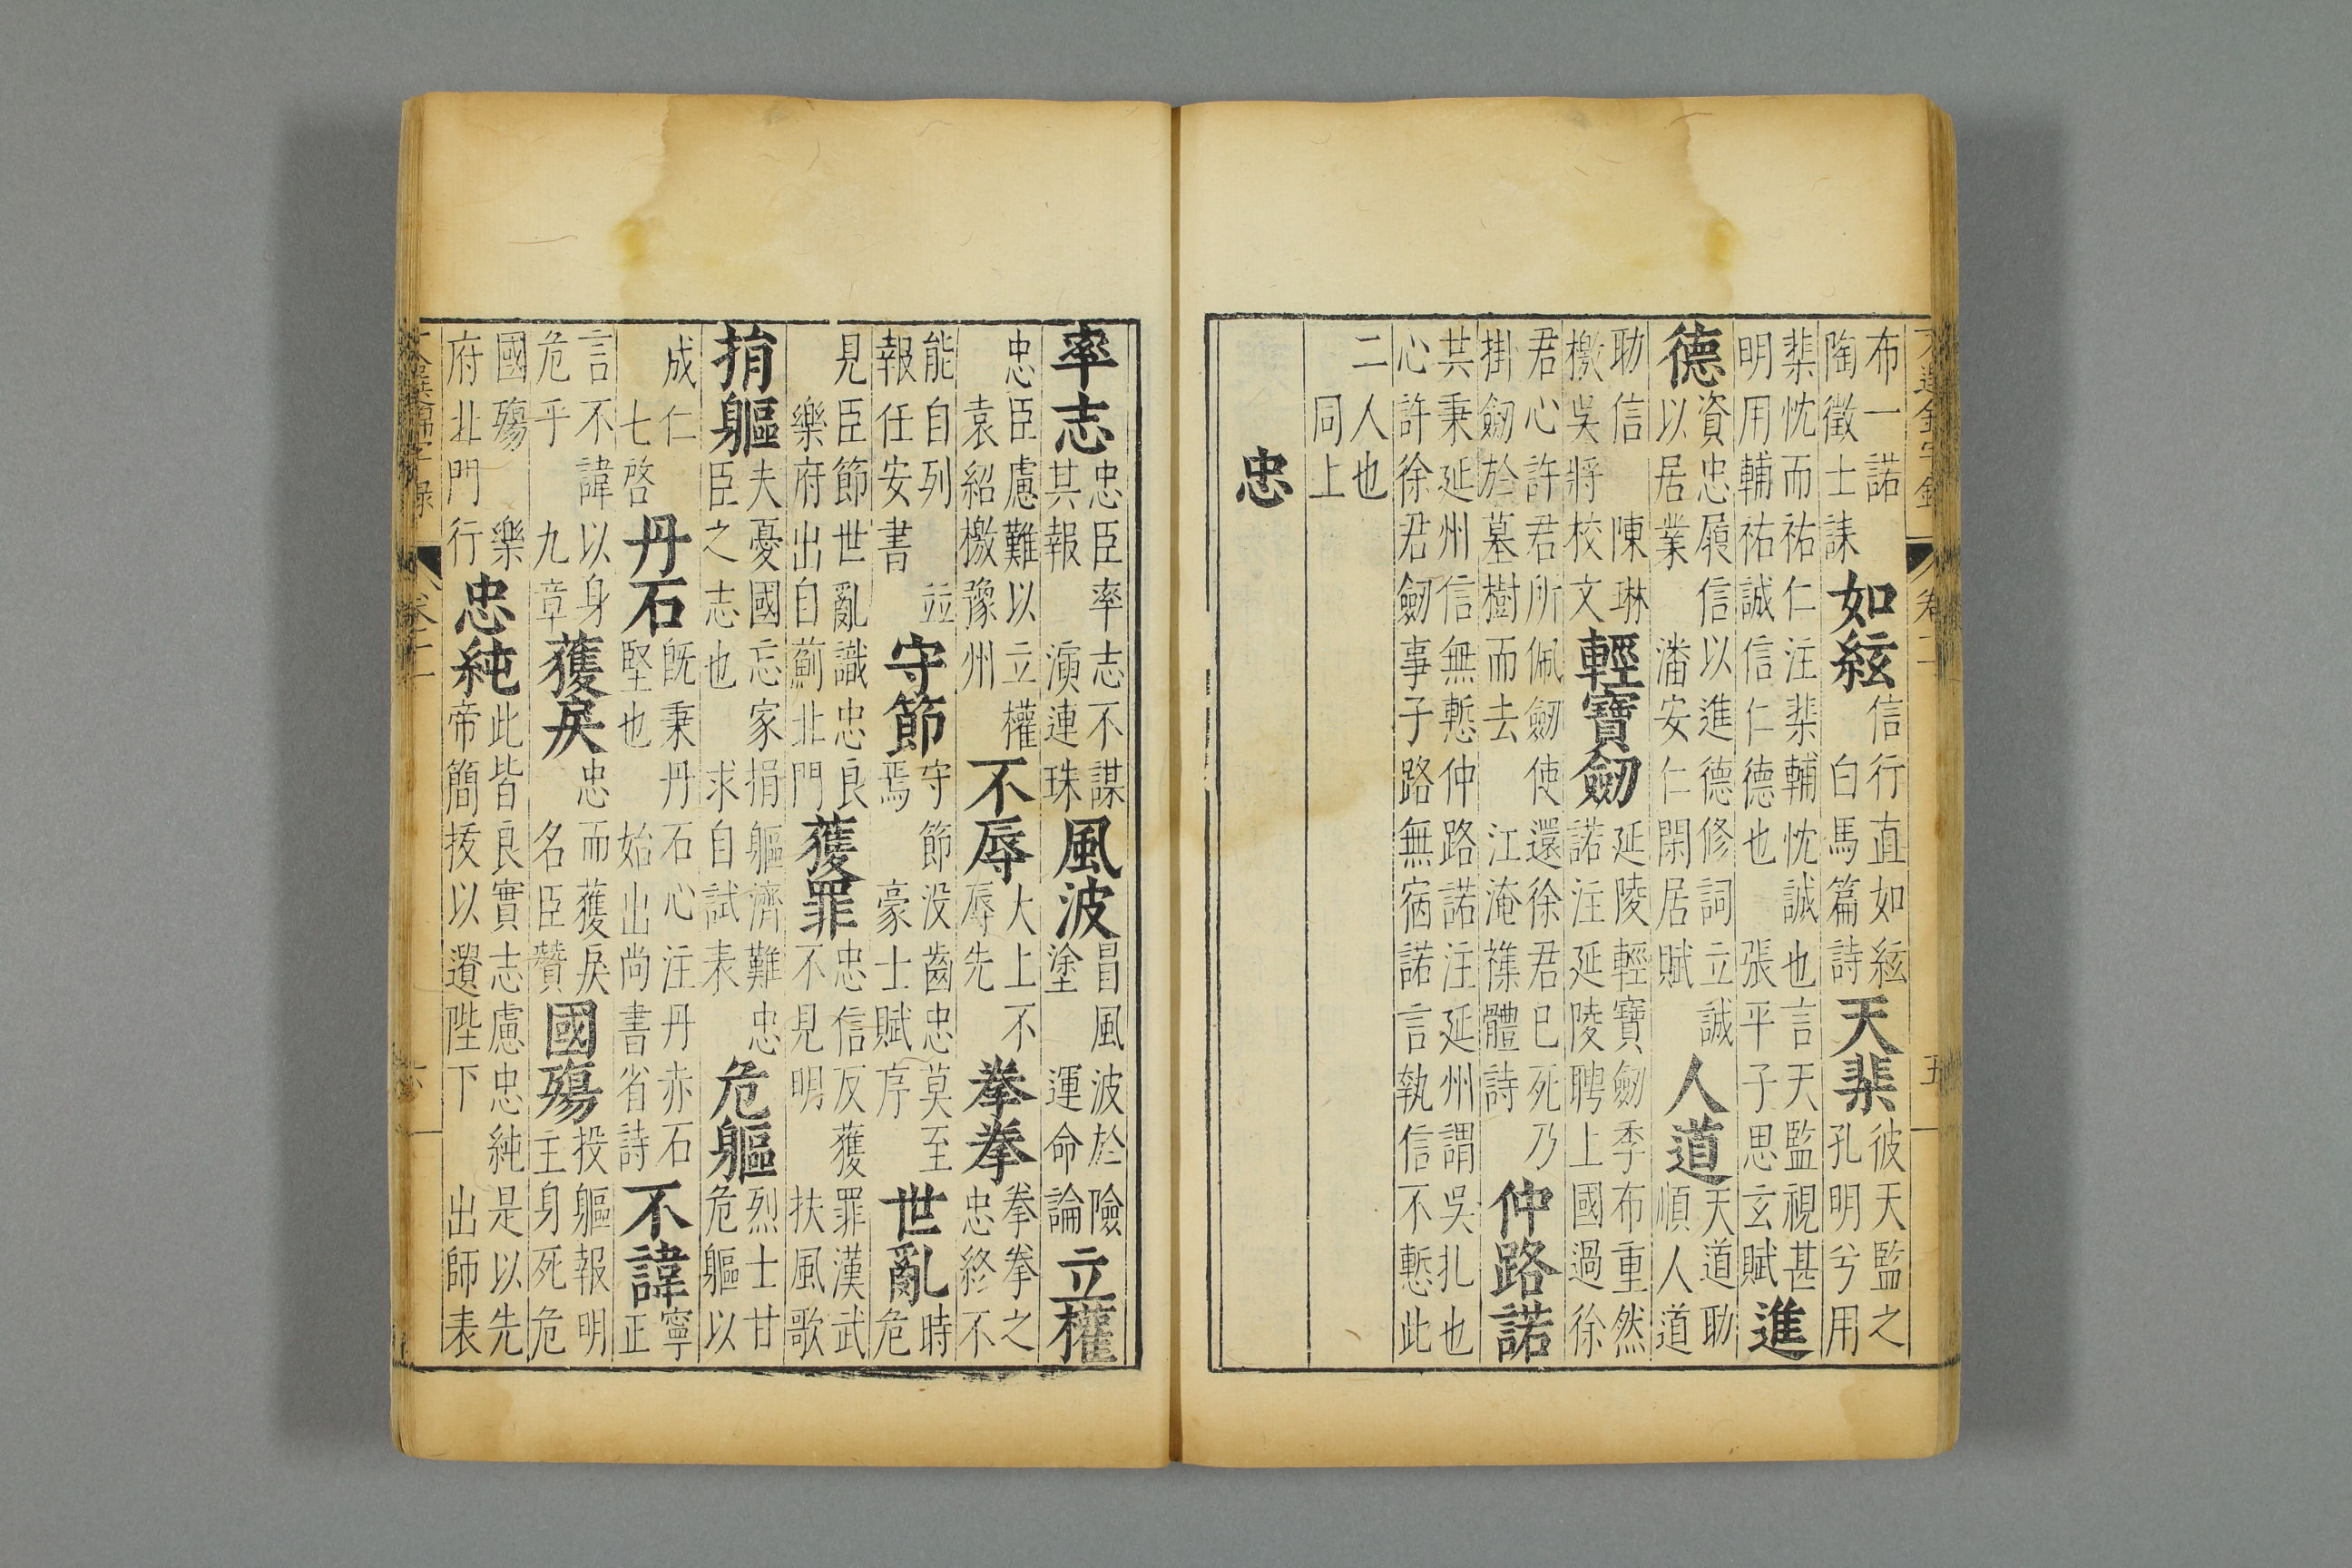 布一諾陶徵士誄如絃信行直如絃白馬篇詩天棐彼天監之孔明兮用
棐忱而祐仁注棐輔忱誠也言天監視甚明用輔祐誠信仁德也張平子思玄賦進
德資忠履信以進德修詞立誠以居業潘安仁閑居賦人道天道助順人道
助信陳琳檄吳將校文輕寶劒延陵輕寶劒季布重然諾注延陵聘上國過徐
君心許君所佩劒使還徐君已死乃掛劒於墓樹而去江淹襍體詩仲路諾
共秉延州信無慙仲路諾注延州謂吳扎也心許徐君劒事子路無宿諾言執信不慙此
二人也同上
忠
率志忠臣率志不謀其報演連珠風波冒風波於險塗運命論立權
忠臣慮難以立權袁紹檄豫州不辱大上不辱先拳拳拳拳之忠終不
能自列報任安書並守節守節没齒忠莫至焉豪士賦序世亂時危
見臣節世亂識忠良樂府出自薊北門獲罪忠信反獲罪漢武不見明扶風歌
捐軀夫憂國忘家捐軀濟難忠臣之志也求自試表危軀烈士甘危軀以
成仁七啓丹石既秉丹石心注丹赤石堅也始出尚書省詩不諱寧正
言不諱以身危乎九章獲戾忠而獲戾名臣贊國殤投軀報明主身死危
國殤樂府北門行忠純此皆良實志慮忠純是以先帝簡拔以遺陛下出師表